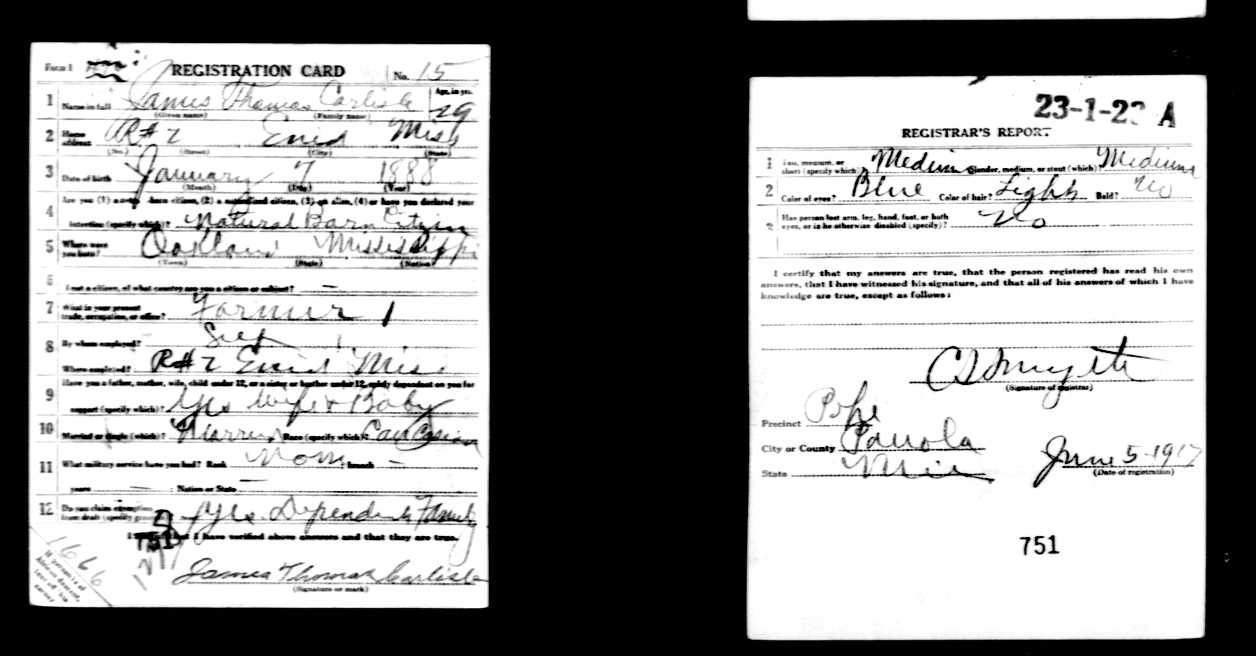 Form 1 REGISTRATION CARD No. 15
1 Name in full James Thomas Carlisle Age, in yrs. 29
(Given name) (Family name)
2 Home address R#2 Enid Miss
(No.) (Street) (City) (State)
3 Date of birth January 7 1888
(Month) (Day) (Year)
Are you (1) a natural-born citizen, (2) a naturalized citizen, (3) an alien, (4) or have you declared your
4 intention (specify which)? Natural Born Citizen
5 Where were you born? Oakland Mississippi
(Town) (State) (Nation)
6 If not a citizen, of what country are you a citizen or subject? —
7 What is your present trade, occupation, or office? Farmer 1
8 By whom employed? Self
Where employed? R#2 Enid Miss
Have you a father, mother, wife, child under 12, or a sister or brother under 12, solely dependent on you for
9 support (specify which)? Yes Wife & Baby
10 Married or single (which)? Married Race (specify which)? Caucasian
11 What military service have you had? Rank None branch —
years — ; Nation or State —
12 Do you claim exemption from draft (specify grounds)? Yes. Dependent Family
I affirm that I have verified above answers and that they are true.
751
1666
James Thomas Carlisle
(Signature or mark)
If person is of African descent, tear off this corner
23-1-23 A
REGISTRAR'S REPORT
1 Tall, medium, or short (specify which)? Medium Slender, medium, or stout (which)? Medium
2 Color of eyes? Blue Color of hair? Light Bald? No
3 Has person lost arm, leg, hand, foot, or both eyes, or is he otherwise disabled (specify)? No
I certify that my answers are true, that the person registered has read his own
answers, that I have witnessed his signature, and that all of his answers of which I have
knowledge are true, except as follows:
C S Smythe
(Signature of registrar)
Precinct Pope
City or County Panola
State Miss
June 5-1917
(Date of registration)
751